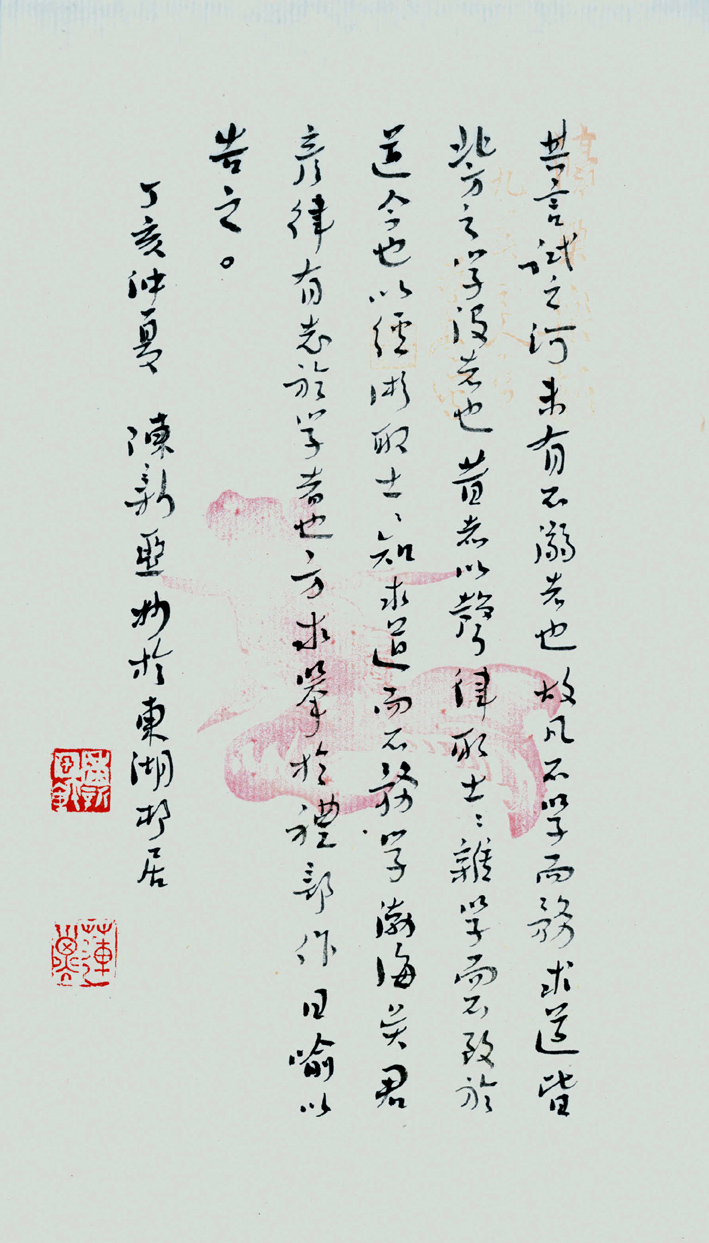 其言試之河未有不溺者也故凡不學而務求道皆
北方之學没者也昔者以聲律取士〻雜學而不致於
道今也以經術取士〻知求道而不務學渤海吴君
彦律有志於學者也方求舉於禮部作日喻以
告之。
丁亥仲夏 陳新亞抄於東湖邨居